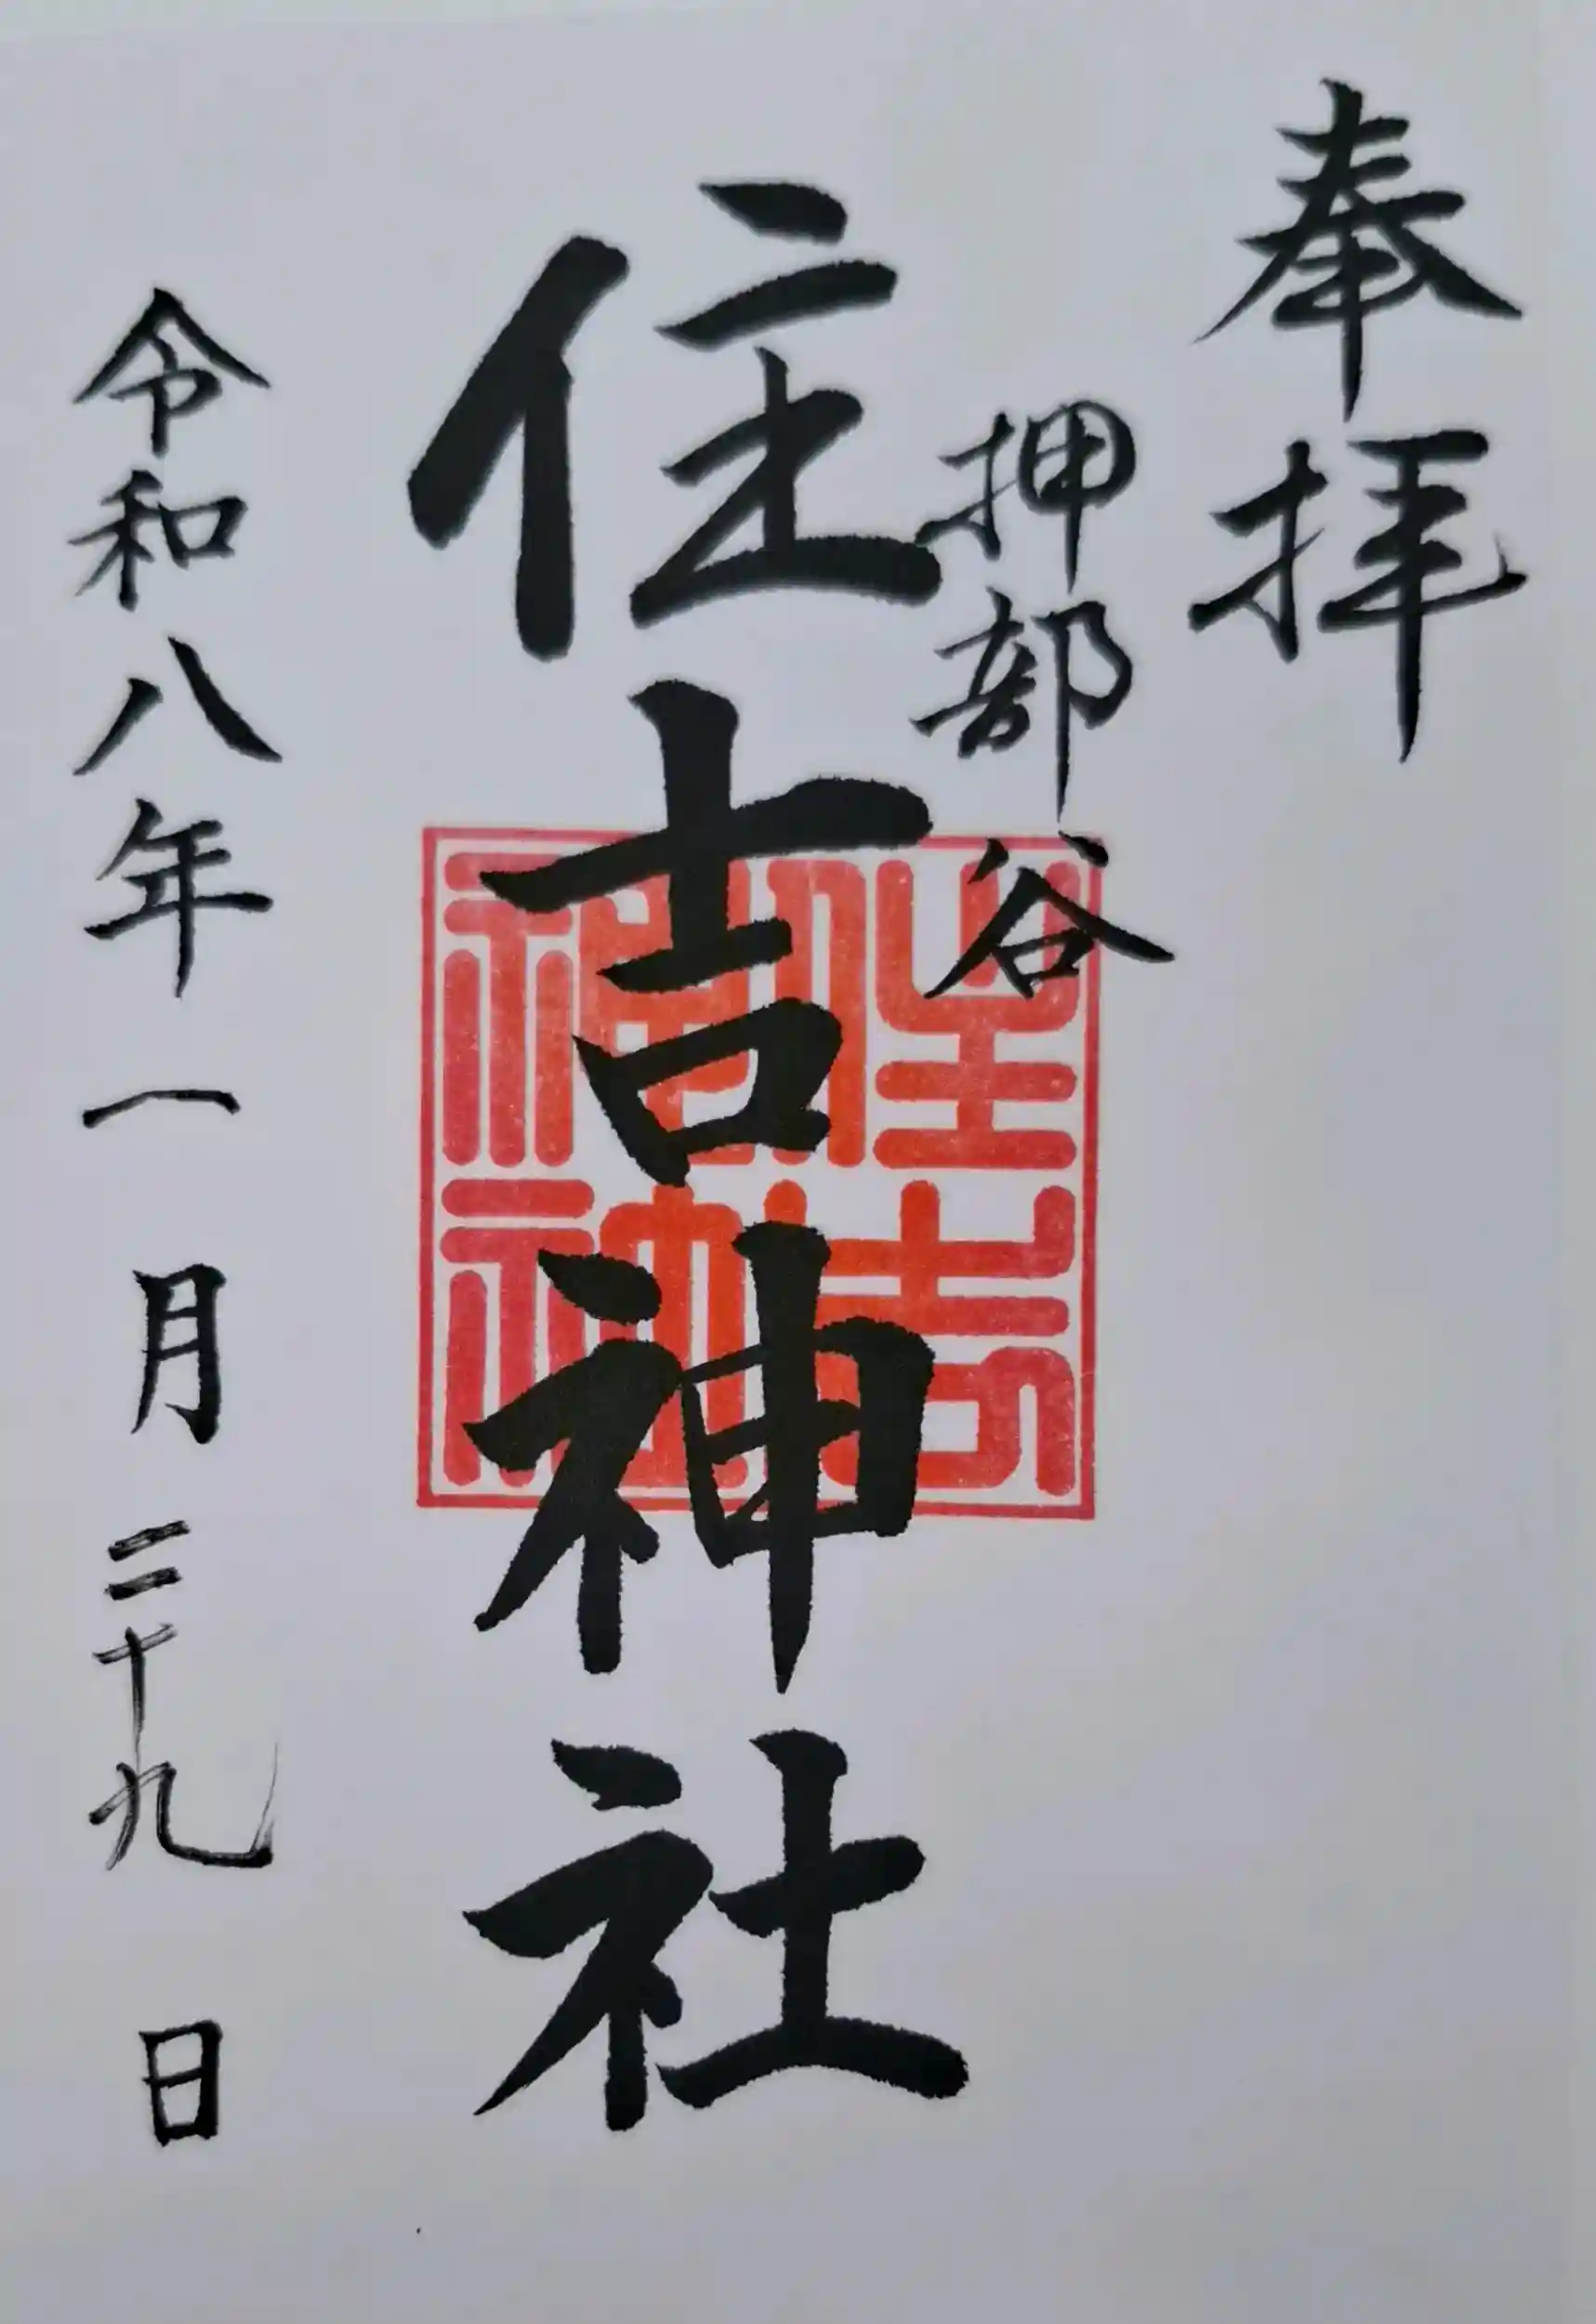 奉拝
押部谷
住吉神社
住吉神社
令和八年一月二十九日